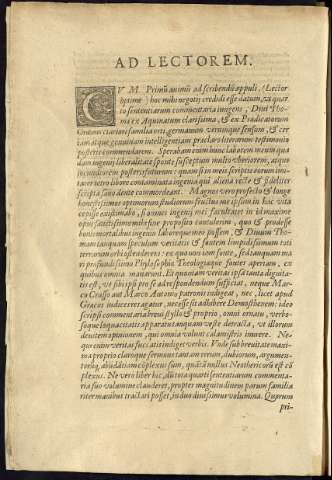 AD LECTOREM.
CVM. Primũ animũ ad scribendũ appuli, (Lector
optime) hoc mihi negotij credidi esse datum, vt quar
to sententiarum commentaria iungens, Diui Tho
mæ ex Aquinatum clarissima, & ex Prædicatorum
familia orti, germanum verumque sensum, & cer
tam atque genuinam intelligentiam præclaro litterarum
posteris commendarem. Sperabam enim hunc laborem meum qua
dam ingenij liberalitate sponte susceptum multo vberiorem, atque
iucundiorem posteris futurum: quam si in meis scriptis eorum imi
tarer
scripta sunt dente commordeant. Magnus vero profecto & longe
honestissimus optimorum studiorum fructus me ipsum in hac vita
cepisse existimabo, si omnes ingenij mei facultates in hisce
opus sanctissimum hoc proposito contulerim, quo & prodesse
bonis mortalibus ingenio laboreque meo possem, & Diuum Tho
mam tanquam speculum veritatis & fontem limpidissimum toti
terrarum orbi ostenderem: ex quo vno non fonte, sed tanquam mari
profundissimo Philosophiæ Theologiæque fontes apertum, ex
quibus omnia manarent. Et quoniam veritas ipsa tanta dignita
tis est, vt sibi ipsi pro se ad respondendum sufficiat, neque Mar
co Crasso aut Marco Antonio patronis indigeat, nec, licet apud
Græcos iudiceretur agatur, necesse sit adhibere Demosthenem: ideo
scripsi commentaria breui stylo & proprio, omni ornatu, verbo-
sæque loquacitatis apparatu tanquam veste detracta, vt illorum
deuitem opinionem, qui omnia volunt calamistris inurere. Ne-
que enim veritas fucatis indiget verbis. Vnde sub breuitate maxi
ma proprio claroque sermone tantam rerum, dubiorum, argumen-
torumque, abieci complexus sum, quãtã nullus Neothericorũ est cõ
plexus. Ne vero liber hic, dũ tota quarti sententiarum commenta-
ria suo volumine clauderet, propter magnitudinem parum familia
riter manibus tractari posset, in duo diuisimus volumina. Quorum
pri-